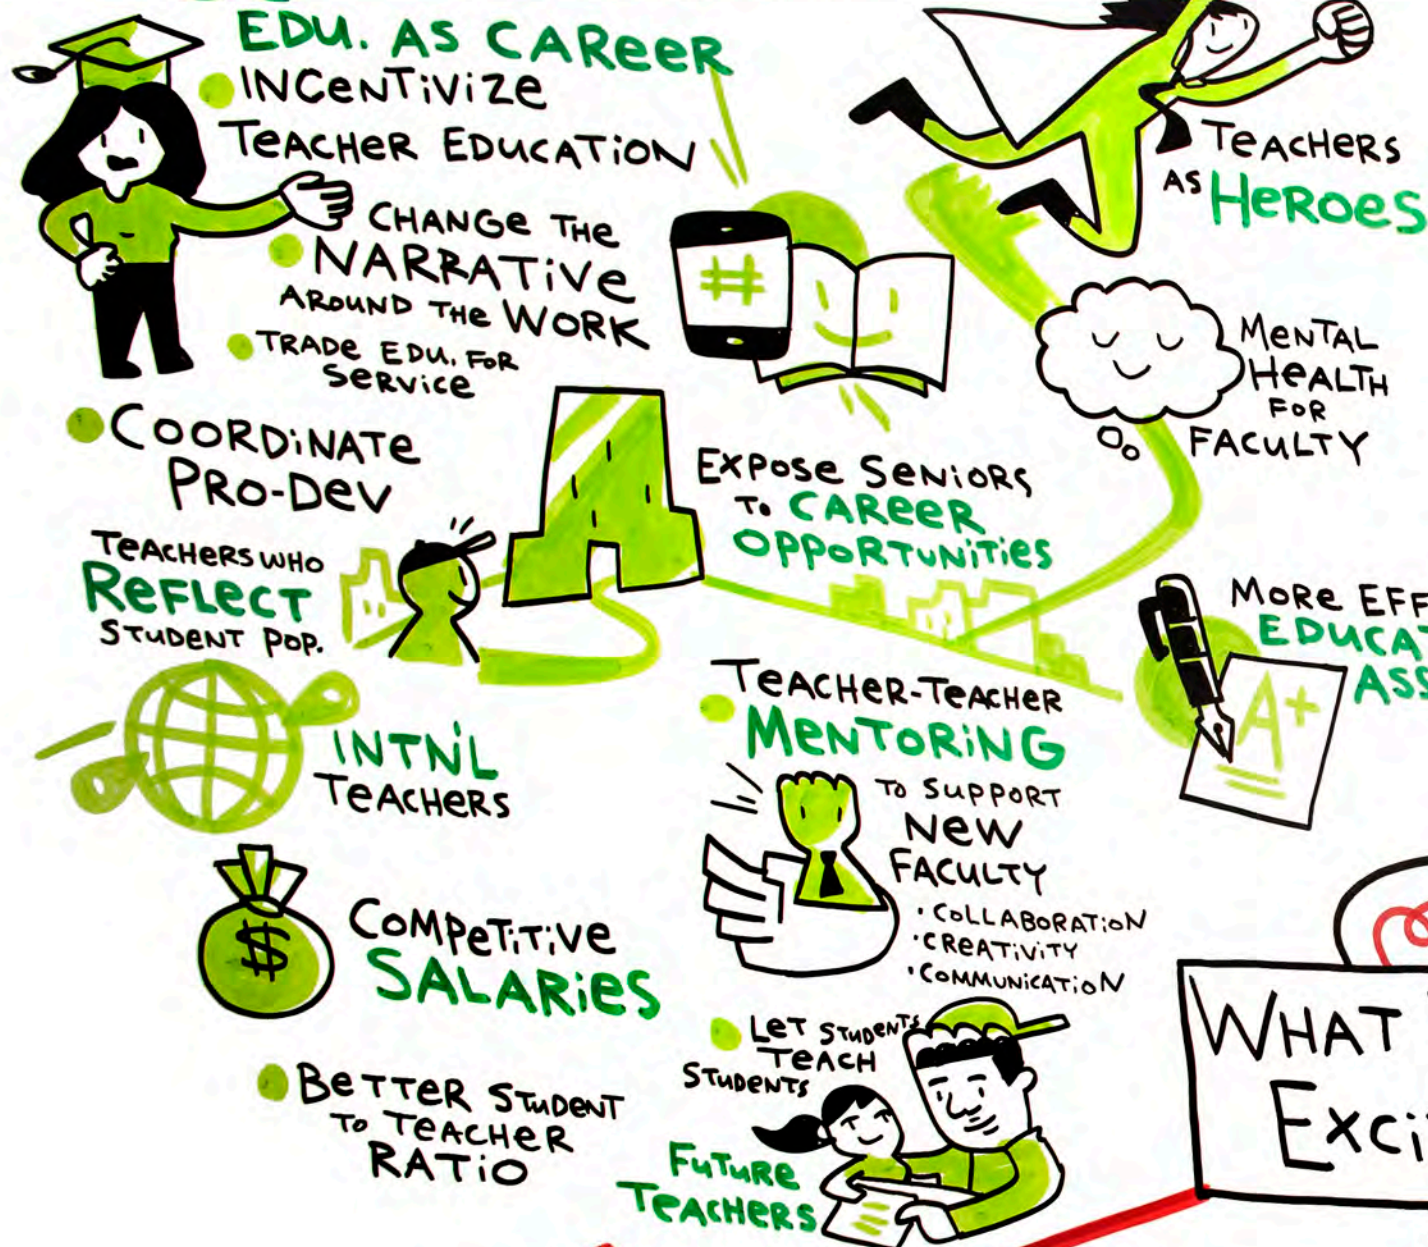 EDU. AS CAREER
INCENTIVIZE
TEACHER EDUCATION
CHANGE THE
NARRATIVE
AROUND THE WORK
TRADE EDU. FOR
SERVICE
COORDINATE
PRO-DEV
TEACHERS WHO
REFLECT
STUDENT POP.
INTN'L
TEACHERS
$
COMPETITIVE
SALARIES
BETTER STUDENT
TO TEACHER
RATIO
#
EXPOSE SENIORS
TO CAREER
OPPORTUNITIES
TEACHER-TEACHER
MENTORING
TO SUPPORT
NEW
FACULTY
• COLLABORATION
• CREATIVITY
• COMMUNICATION
LET STUDENTS
TEACH
STUDENTS
FUTURE
TEACHERS
TEACHERS
AS HEROES
MENTAL
HEALTH
FOR
FACULTY
MORE EFF
EDUCAT
ASS
A+
WHAT
EXCI